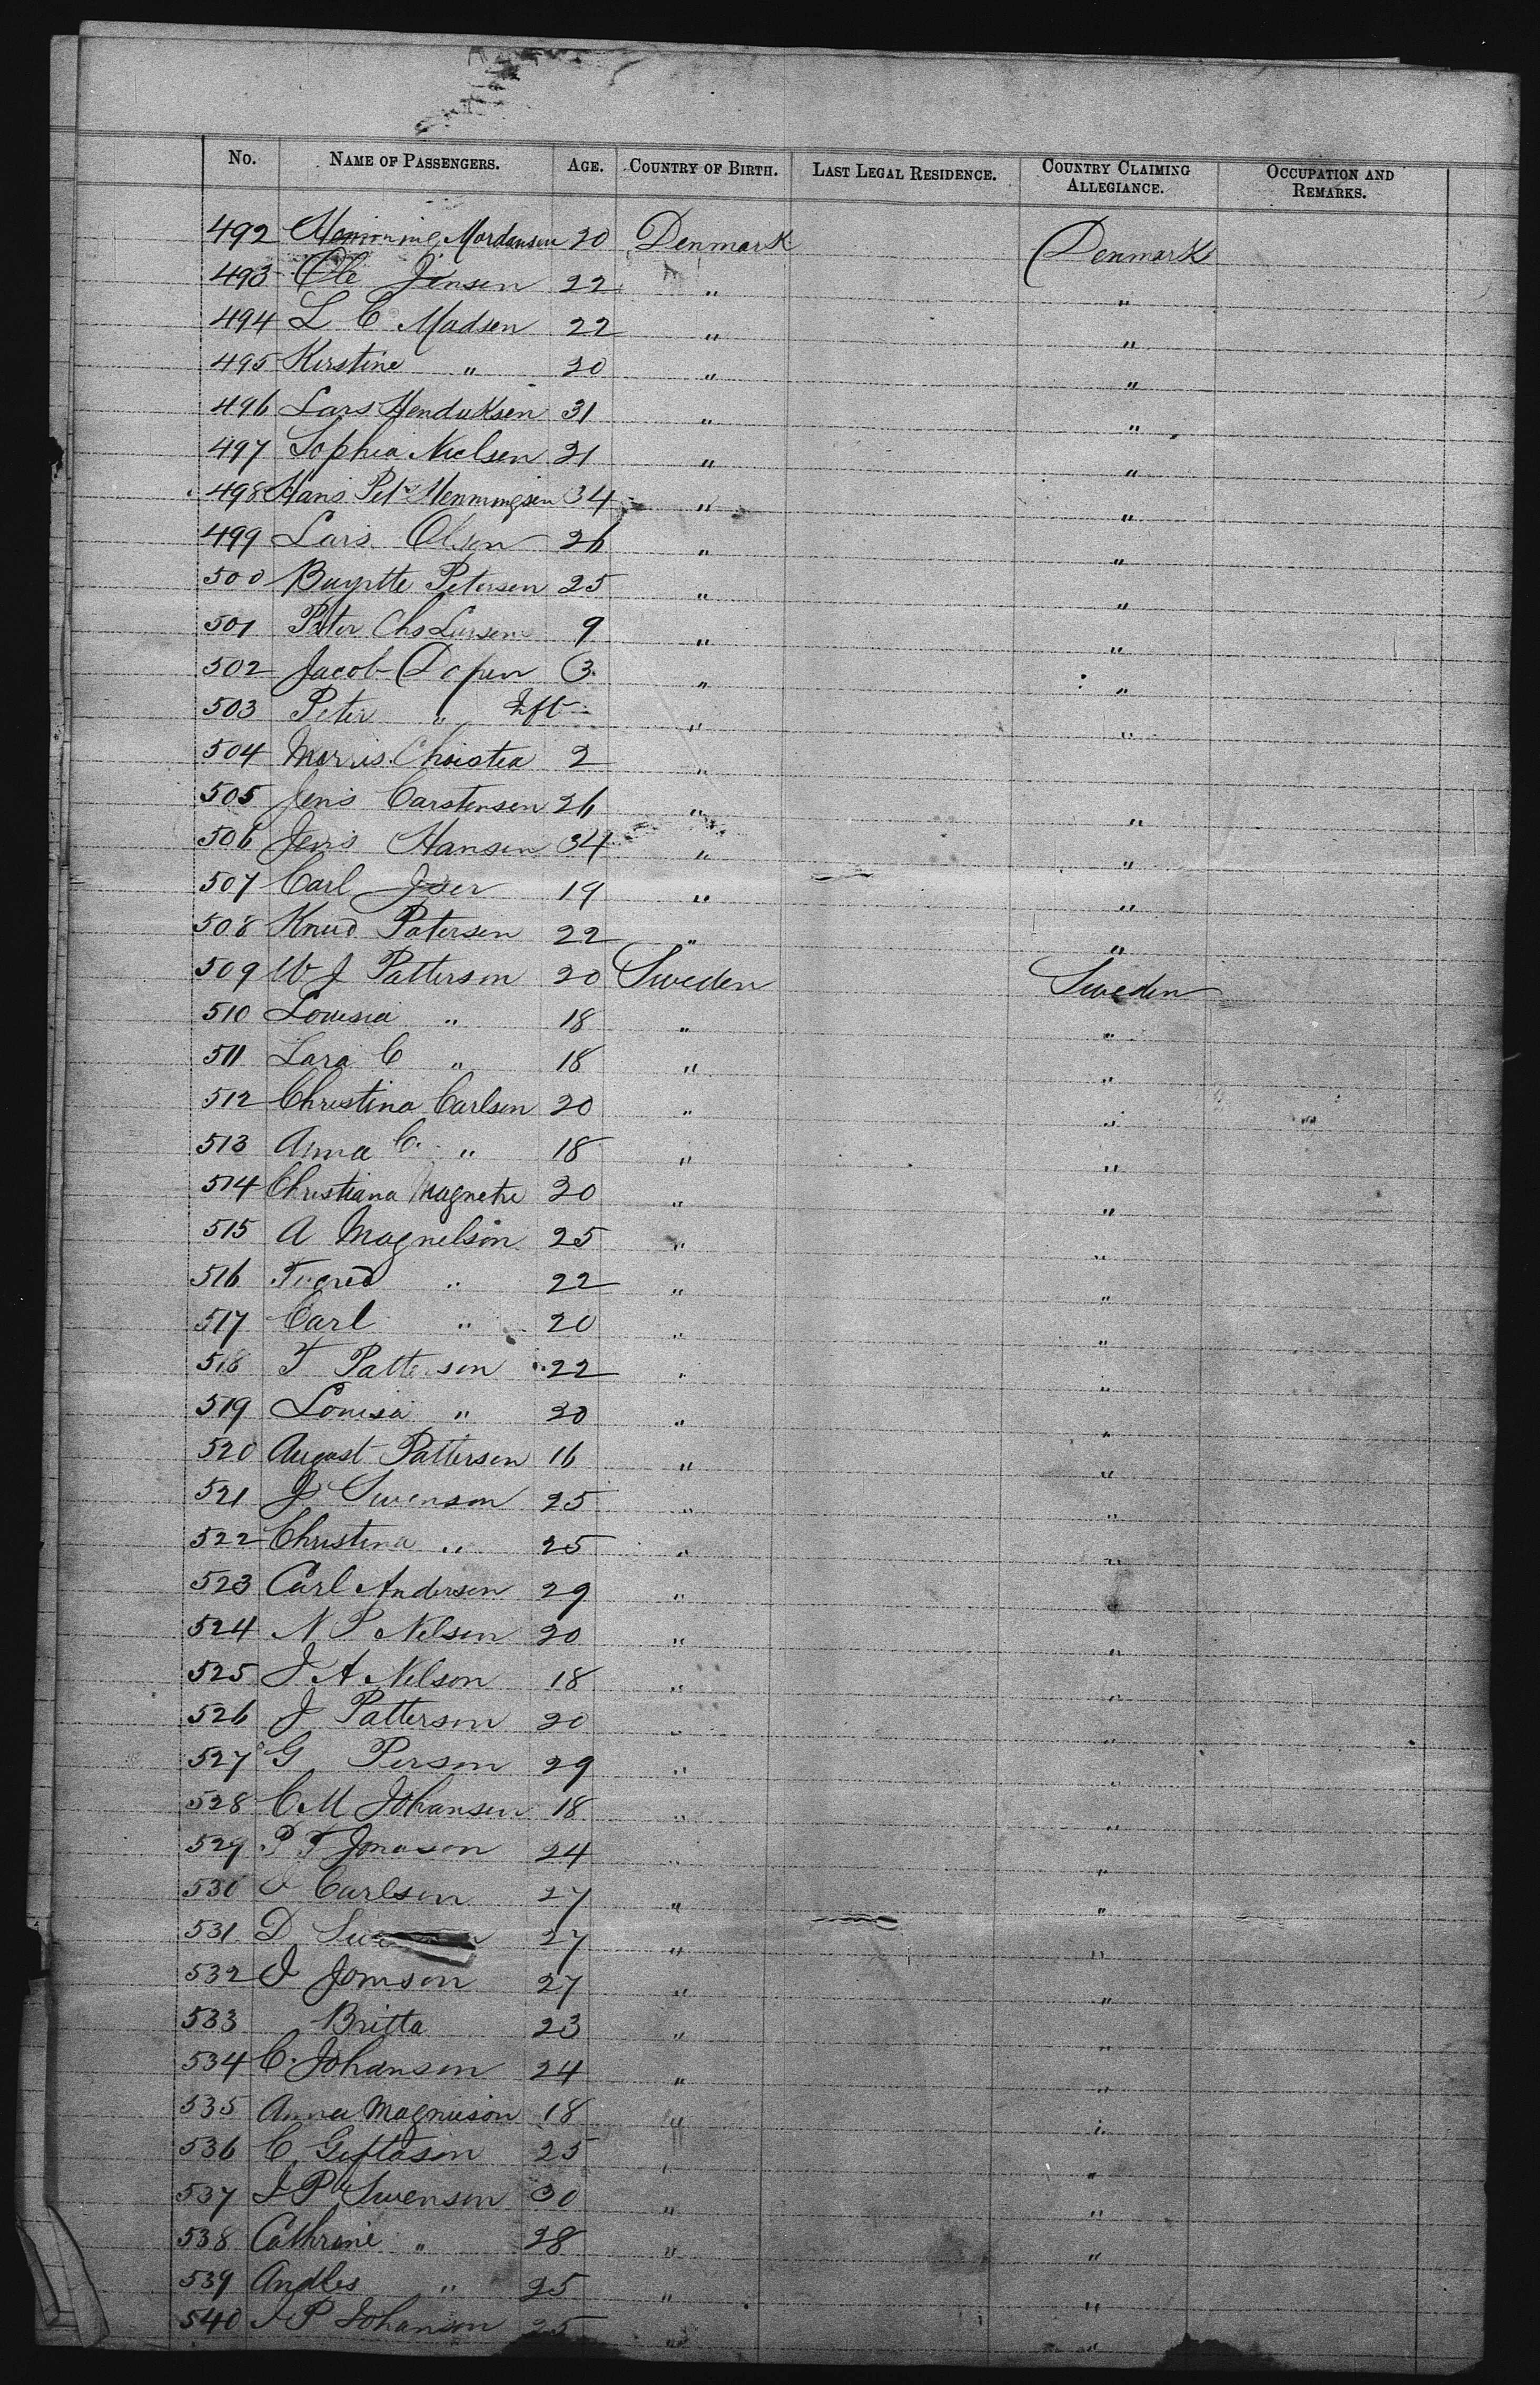 No. NAME OF PASSENGERS. AGE. COUNTRY OF BIRTH. LAST LEGAL RESIDENCE. COUNTRY CLAIMING ALLEGIANCE. OCCUPATION AND REMARKS.
492 Mordensen 20 Denmark Denmark
493 Ole Jensen 22 " "
494 L C Madsen 22 " "
495 Kirstine " 20 " "
496 Lars Henduksen 31 " "
497 Sophia Nielsen 21 " "
498 Hans Pet Henningsen 34 " "
499 Lars Olsen 26 " "
500 Petersen 25 " "
501 Peter Chs Larsen 9 " "
502 Jacob 3 " "
503 Peter " Inft " "
504 Morris Christea 2 "
505 Jens Carstensen 26 " "
506 Jens Hansen 34 " "
507 Carl 19 " "
508 Knud Patersen 22 " "
509 W J Patterson 20 Sweden Sweden
510 Louisa " 18 " "
511 Lara C " 18 " "
512 Christina Carlsen 20 " "
513 Anna C. " 18 " "
514 Christiana 20 " "
515 A Magnelson 25 " "
516 " 22 " "
517 Carl " 20 " "
518 T Patterson 22 " "
519 Louisa " 20 " "
520 August Pattersen 16 " "
521 J Swenson 25 " "
522 Christina " 25 " "
523 Carl Andersen 29 " "
524 N P Nelsen 20 " "
525 J A Nelson 18 " "
526 J Patterson 20 " "
527 G Person 29 " "
528 C M Johansen 18 " "
529 P T Jonason 24 " "
530 J Carlsen 27 " "
531 D 27 " "
532 J Jonson 27 " "
533 Britta 23 " "
534 C. Johanson 24 " "
535 Anna Magnuson 18 " "
536 C Geftason 25 " "
537 J P Swensen 30 " "
538 Cathrine " 28 " "
539 Andles " 25 " "
540 J P Johanson 25 " "